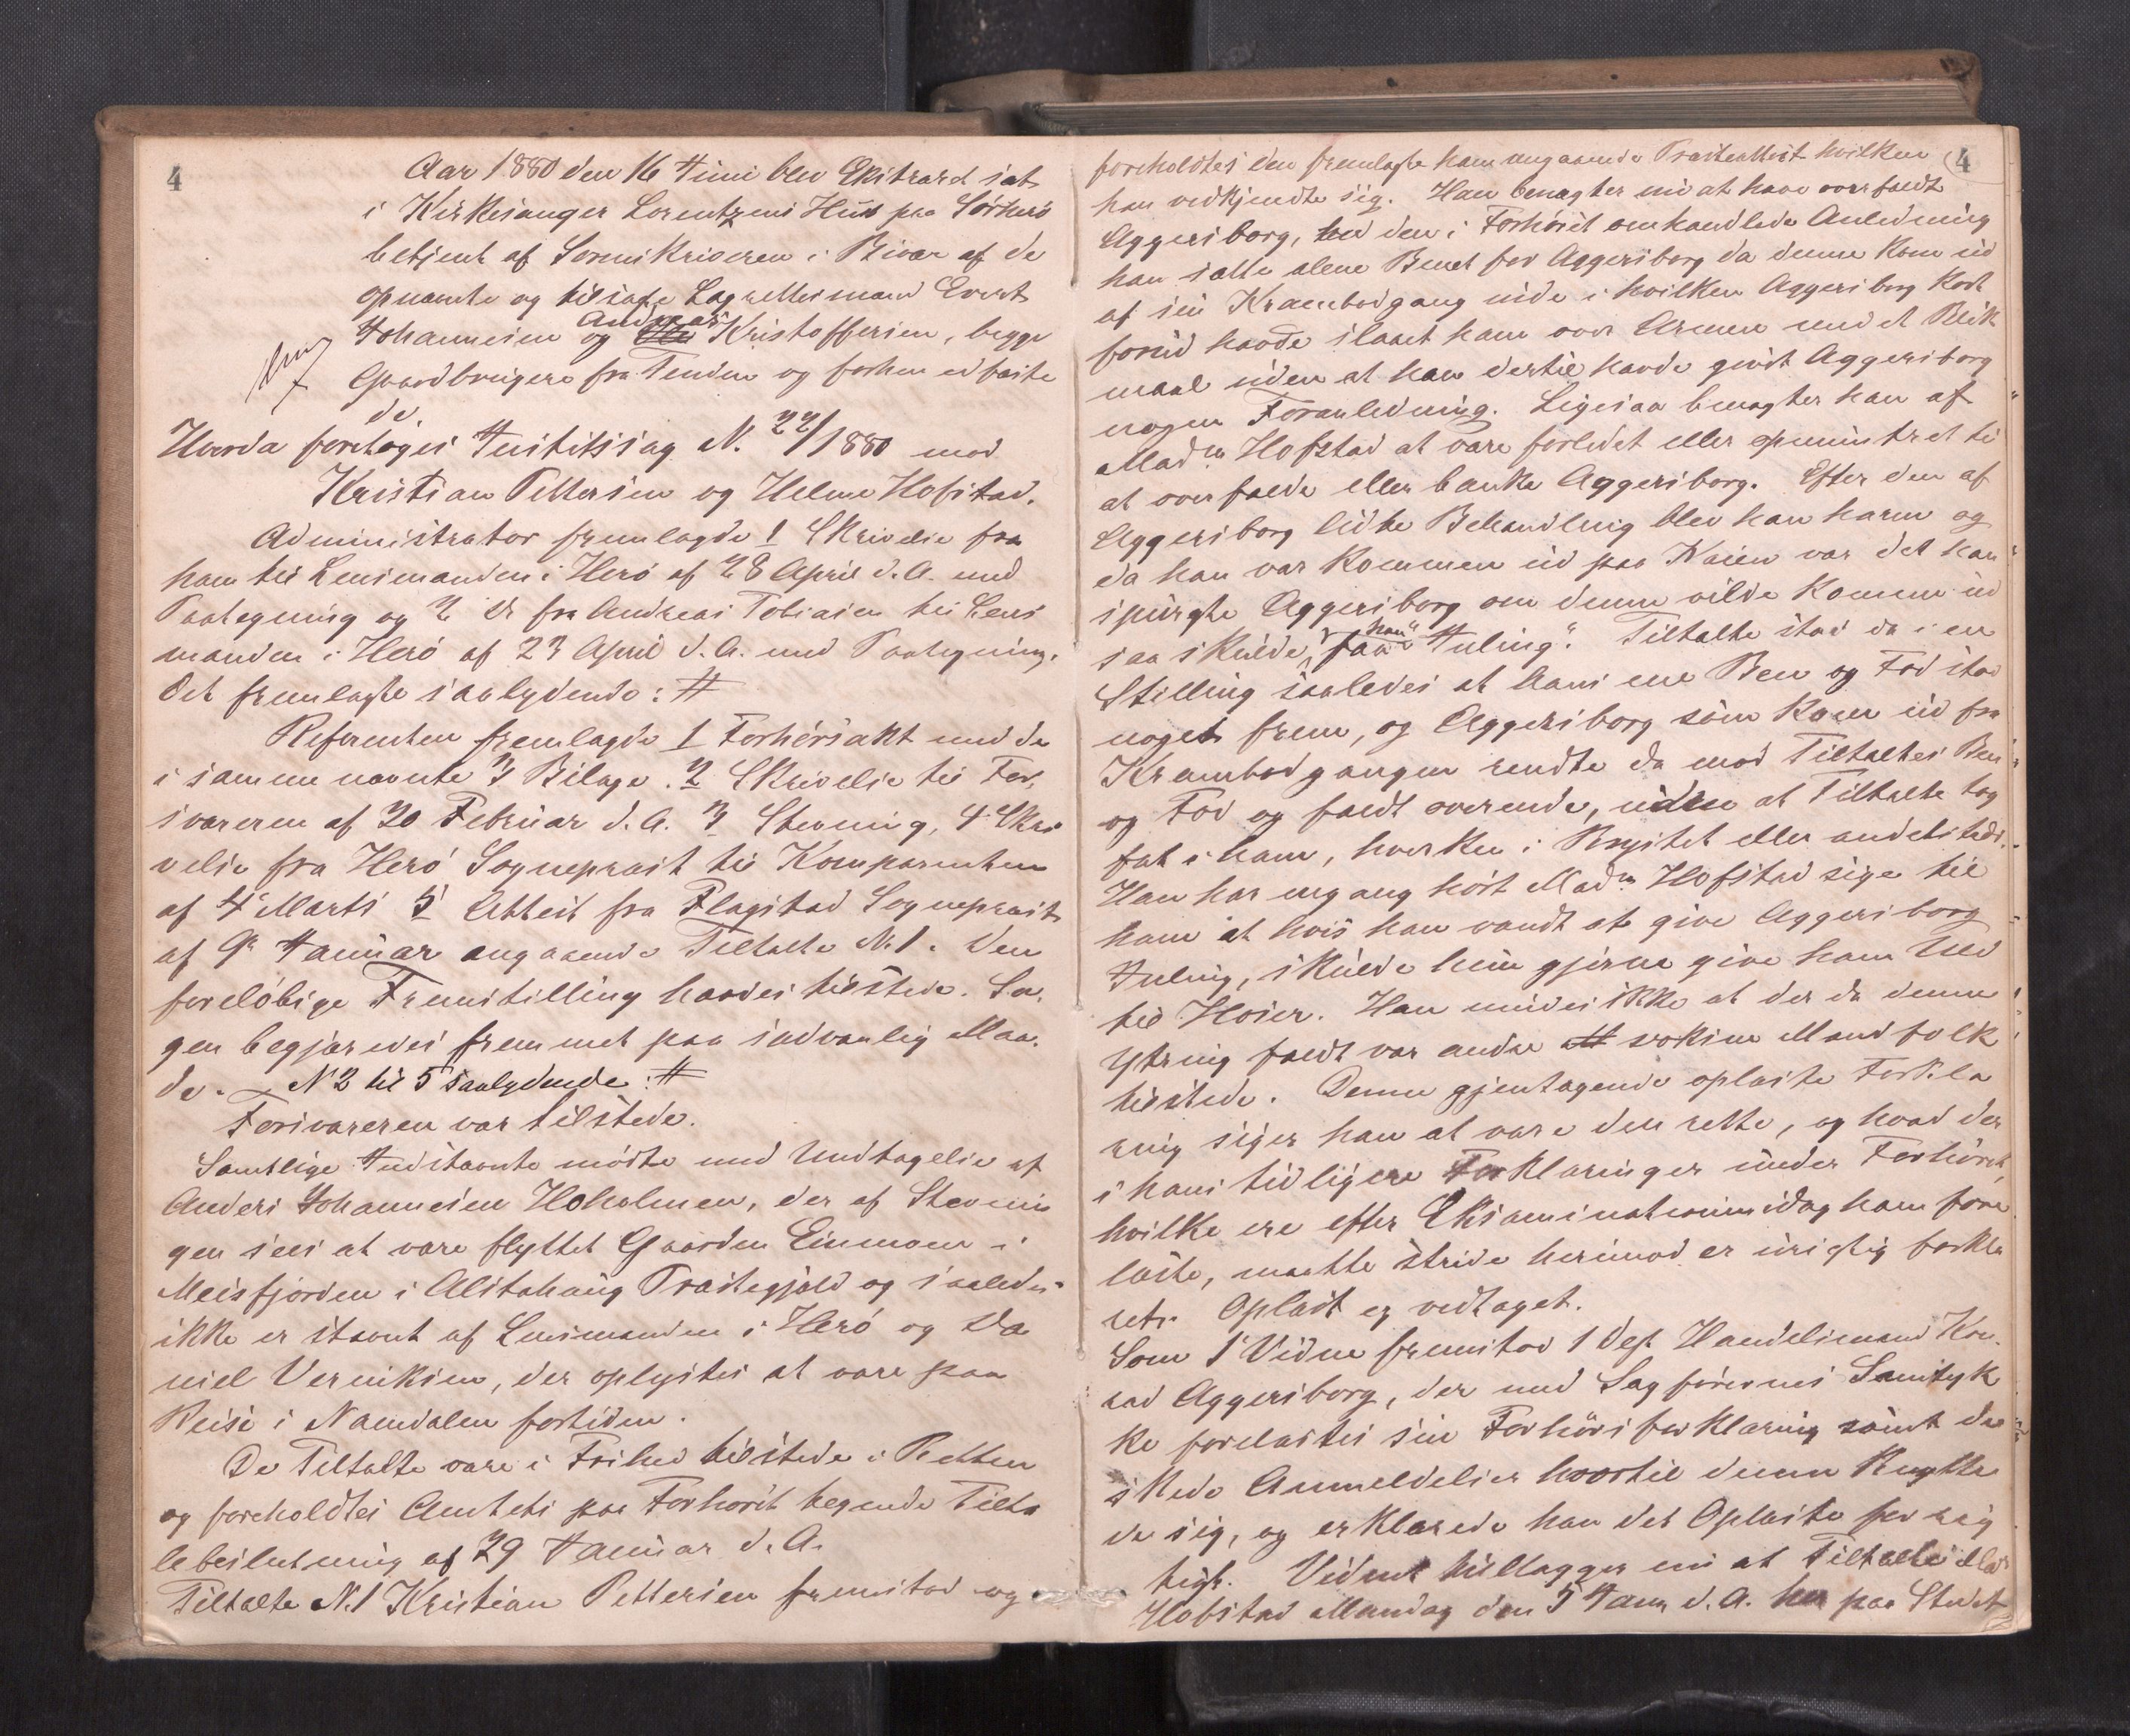 4
Aar 1880 den 16 Juni blev Ekstraret sat
i Kirkesanger Lorentzens Hus paa Sørherø
betjent af Sorenskriveren i Bivær af de
opnævnte og tilsagte Lagrettesmænd Evert
Johannesen og Andreas Kristoffersen, begge
Gaardbrugere fra Tenden og forhen edfæste
Hvorda foretoges Justitssag N. 22/1880 mod
de
Kristian Pettersen og Helene Hofstad.
Administrator fremlagde 1 Skrivelse fra
ham til Lensmanden i Herø af 28 April d.A. med
Paategning og 2 Dr fra Andreas Tobiasen til Lens
manden i Herø af 23 April d.A. med Paategning.
Det fremlagte saalydende: #
Referenten fremlagde 1 Forhørsakt med de
i samme nævnte 3 Bilage. 2 Skrivelse til For,
svareren af 20 Februar d.A. 3 Stevning, 4 Skri
velse fra Herø Sognepræst til Komparenten
af 4 Marts 5 Attest fra Flagstad Sognepræst
af 9 Januar angaaende Tiltalte N.1. Den
foreløbige Fremstilling havdes tilstede. Sa,
gen begjæredes fremmet paa sædvanlig Maa,
de. – N 2 til 5 saalydende: #
Forsvareren var tilstede.
Samtlige Indstævnte mødte med Undtagelse af
Anders Johannesen Hoholmen, der af Stevnin
gen sees at være flyttet Gaarden Einmoen i
Meisfjorden i Alstahaug Præstegjæld og saaledes
ikke er stævnt af Lensmanden i Herø og Da
niel Verniksen, der oplystes at være paa
Reise i Namdalen fortiden.
De Tiltalte vare i Frihed tilstede i Retten
og foreholdtes Amtets paa Forhøret tegnede Tilta
lebeslutning af 29 Januar d.A.
Tiltalte N.1 Kristian Pettersen fremstod og
4
foreholdtes den fremlagte ham angaaende Præsteattest hvilken
han vedkjendte sig. Han benægter nu at have overfaldt
Aggersborg, ved den i Forhøret omhandlede Anledning
han satte alene Benet for Aggersborg da denne kom ud
af sin Krambodgang inde i hvilken Aggersborg kort
forud havde slaaet ham over Armen med et Blik
maal uden at han dertil havde givet Aggersborg
nogen Foranledning. Ligesaa benægter han af
Madm Hofstad at være forledet eller opmuntret til
at overfalde eller banke Aggersborg. Efter den af
Aggersborg lidte Behandling blev han harm og
da han var kommen ud paa Kaien var det han
spurgte Aggersborg om denne vilde komme ud
saa skulde han "faa Juling". Tiltalte stod da i en
Stilling saaledes at hans ene Ben og Fod stod
noget frem, og Aggersborg som kom ud fra
Krambodgangen rendte da mod Tiltaltes Ben
og Fod og faldt overende, uden at Tiltalte tog
fat i ham, hverken i Brystet eller andetsteds.
Han har engang hørt Madm Hofstad sige til
ham at hvis han vandt at give Aggersborg
Juling, skulde hun gjerne give ham Uld
til Hoser. Han mindes ikke at der da denne
Ytring faldt var andre voksne Mandfolk
tilstede. Denne gjentagende oplæste Forkla
ring siger han at være den rette, og hvad der
i hans tidligere Forklaringer under Forhøret,
hvilke ere efter Eksaminationen idag ham fore
læste, maatte stride herimod er urigtig forkla
ret. Oplæst og vedtaget.
Som 1 Vidne fremstod 1 Dep. Handelsmand Kon,
rad Aggersborg, der med Sagførernes Samtyk
ke forelæstes sin Forhørsforklaring samt de
skede Anmeldelser hvortil denne knytte
de sig, og erklærede han det Oplæste for rig
tigt. Vidnet tillægger nu at Tiltalte Madm
Hofstad Mandag den 5 Janr d.A. her paa Stedet